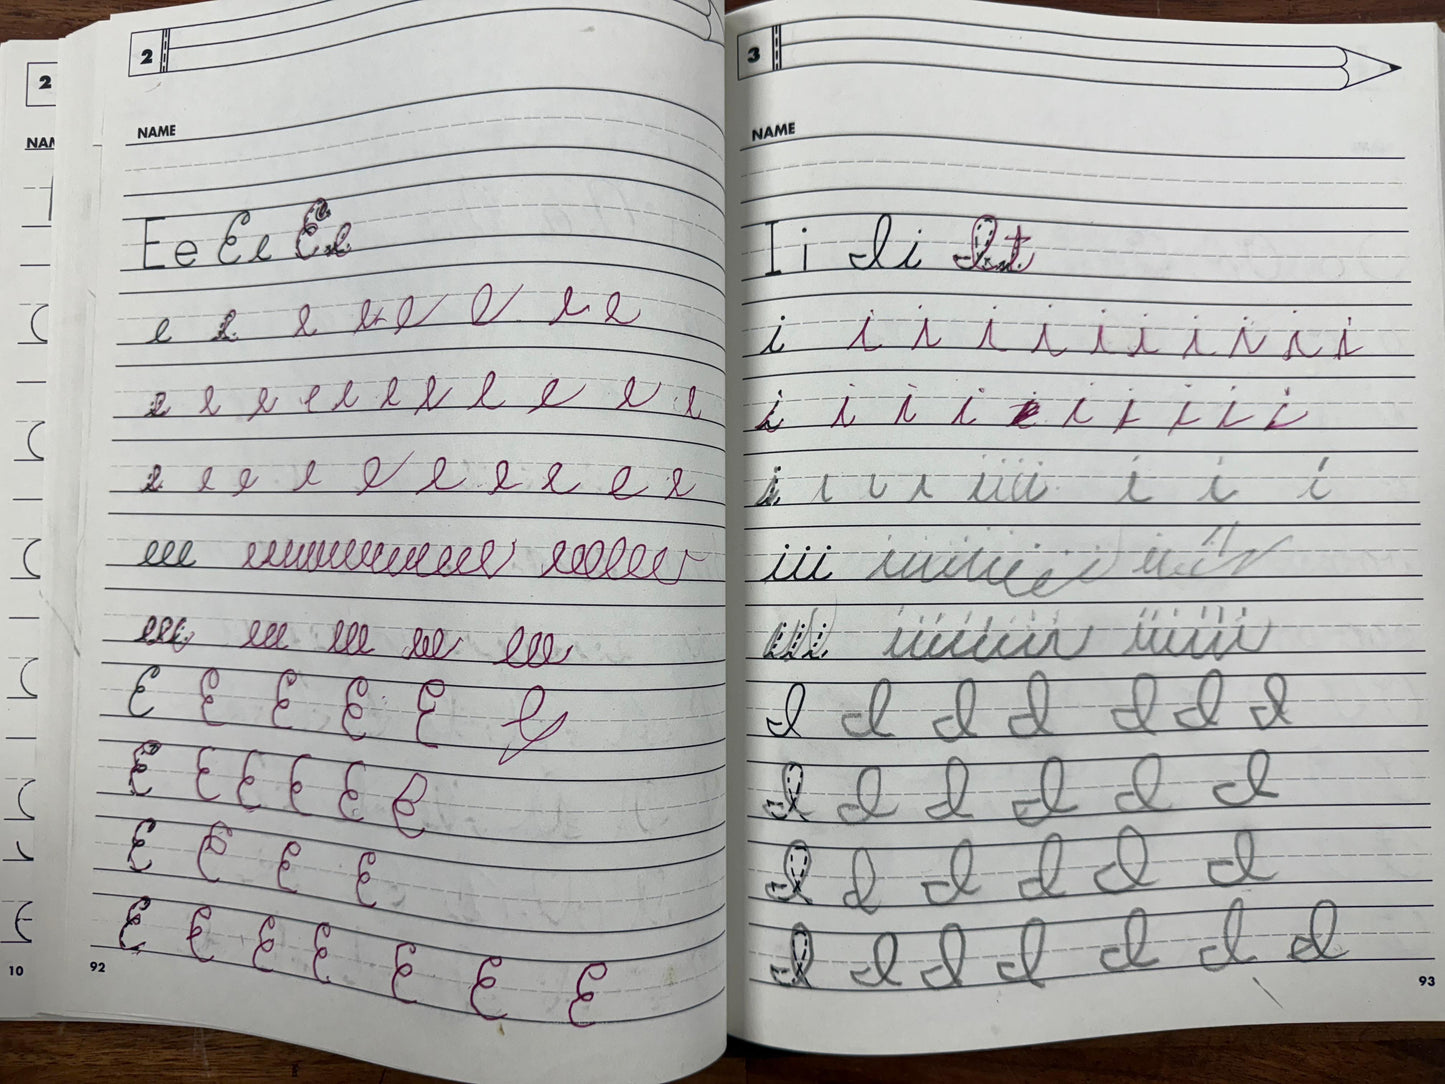 2
NAM
10
2
NAME
Ee Ee Ee
e e e e e e e e e
e e e e e e e e e e e
e e e e e e e e e e
eee eeeeeeeeeeeee eeeeeee
eee eee eee eee eee
E E E E E
E E E E E E
E E E E
E E E E E E E
92
3
NAME
I i I i I t
i i i i i i i i i i i
i i i i i i i i i i
i i i i iiii i i i
iii iiiiii
iii iiiiiiii iiiiii
I I I I I I I
I I I I I I
I I I I I I
I I I I I I I
93